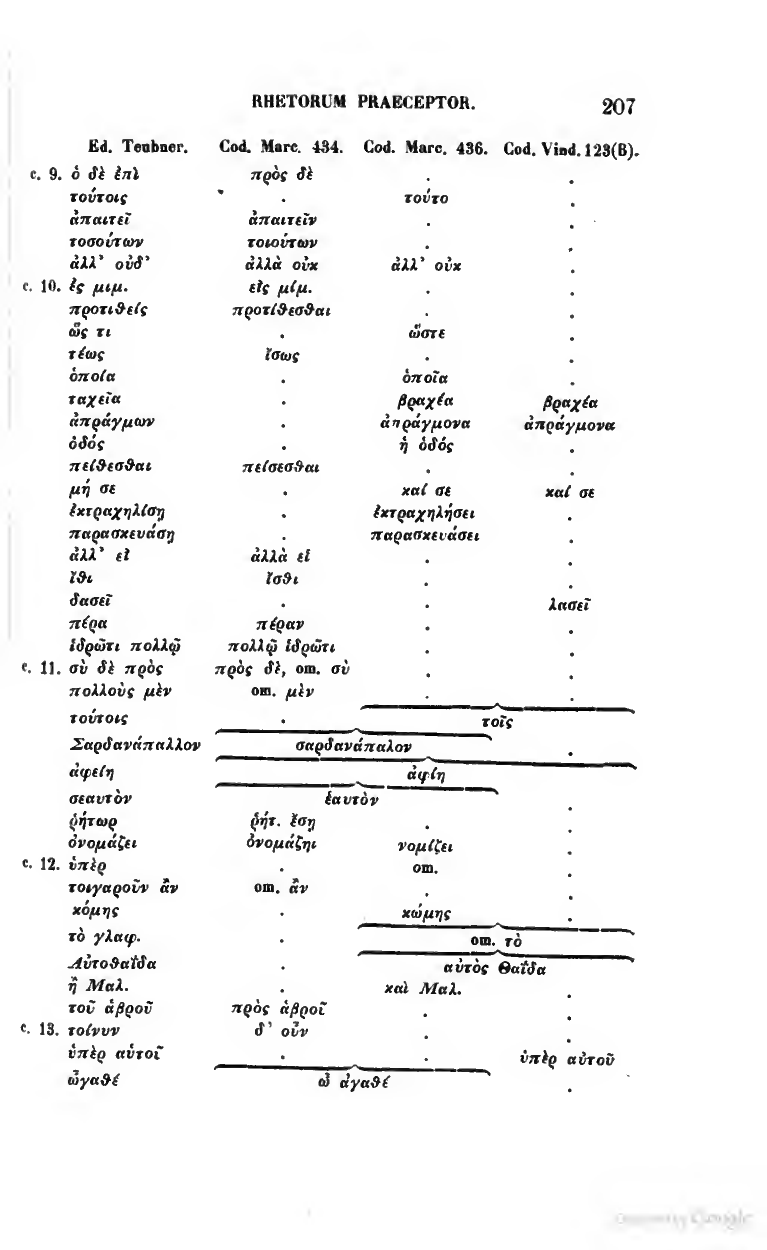 RHETORUM PRAECEPTOR. 207
Ed. Teubner. Cod. Marc. 434. Cod. Marc. 436. Cod. Vind. 123(B).
c. 9. ὁ δὲ ἐπὶ πρὸς δὲ . .
τούτοις . τούτο .
ἀπαιτεῖ ἀπαιτεῖν . .
τοσούτων τοιούτων . .
ἀλλ' οὐδ' ἀλλὰ οὐκ ἀλλ' οὐκ .
c. 10. ἐς μιμ. εἰς μίμ. . .
προτιθείς προτίθεσθαι . .
ὥς τι . ὥστε .
τέως ἴσως . .
ὁποία . ὁποῖα .
ταχεῖα . βραχέα βραχέα
ἀπράγμων . ἀπράγμονα ἀπράγμονα
ὁδός . ἡ ὁδός .
πείθεσθαι πείσεσθαι . .
μή σε . καί σε καί σε
ἐκτραχηλίσῃ . ἐκτραχηλήσει .
παρασκευάσῃ . παρασκευάσει .
ἀλλ' εἰ ἀλλὰ εἰ . .
ἴθι ἴσθι . .
δασεῖ . . λασεῖ
πέρα πέραν . .
ἱδρῶτι πολλῷ πολλῷ ἱδρῶτι . .
c. 11. σὺ δὲ πρὸς πρὸς δὲ, om. σὺ . .
πολλοὺς μὲν om. μὲν . .
τούτοις . τοῖς
Σαρδανάπαλλον σαρδανάπαλον .
ἀφείη ἀφίη
σεαυτὸν ἑαυτὸν .
ῥήτωρ ῥήτ. ἔσῃ . .
ὀνομάζει ὀνομάζηι νομίζει .
c. 12. ὑπὲρ . om. .
τοιγαροῦν ἂν om. ἂν . .
κόμης . κώμης .
τὸ γλαφ. . om. τὸ
Αὐτοθαΐδα . αὐτὸς Θαΐδα
ἢ Μαλ. . καὶ Μαλ. .
τοῦ ἁβροῦ πρὸς ἁβροῦ . .
c. 13. τοίνυν δ' οὖν . .
ὑπὲρ αὑτοῦ . . ὑπὲρ αὐτοῦ
ὦγαθέ ὦ ἀγαθέ .
Google